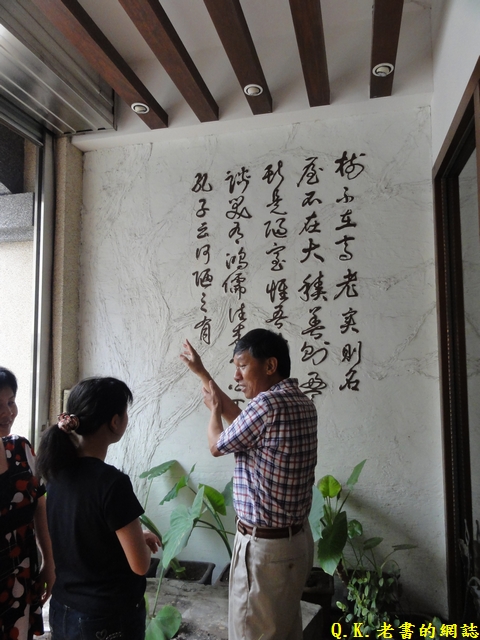 樹不在高老則名
屋不在大積善則
斯是陋室惟吾
談笑有鴻儒往來
孔子云何陋之有
Q.K.老書的網誌